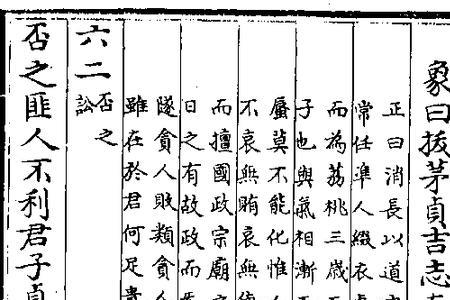 象曰拔茅貞吉志
正曰消長以道
常任準人綴衣
而為荔桃三歲
子也與氣相漸
蜃莫不能化惟人
不哀無賄哀無
而擅國政宗廟
日之有故政而
隧貪人敗類貪人
雖在於君何足貴
六二否之訟
否之匪人不利君子貞